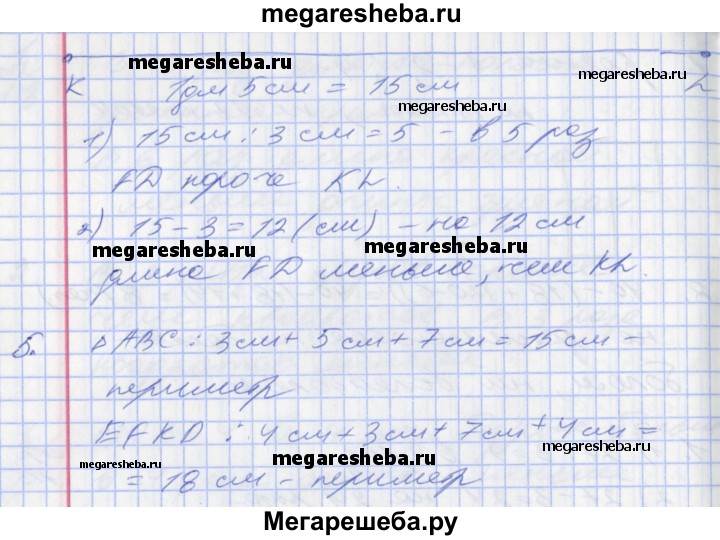 megaresheba.ru
megaresheba.ru
megaresheba.ru
K 1дм 5см = 15см L
megaresheba.ru
1) 15см : 3см = 5 - в 5 раз
FD короче KL.
2) 15 - 3 = 12 (см) - на 12 см
megaresheba.ru
megaresheba.ru
длина FD меньше, чем KL.
5. △ABC : 3см + 5см + 7см = 15см -
периметр
EFKD : 4см + 3см + 7см + 4см =
megaresheba.ru
megaresheba.ru
megaresheba.ru
= 18 см - периметр
Мегарешеба.ру